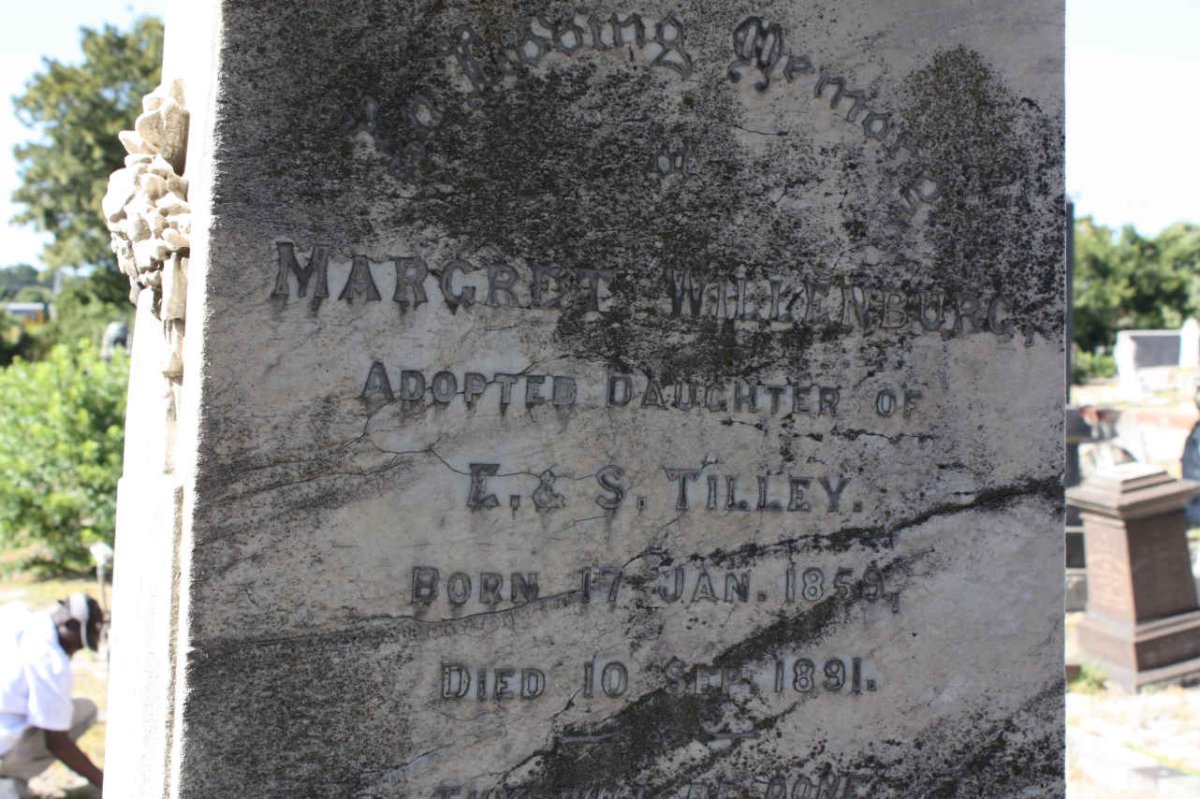 In Loving Memory
of
MARGRET WILLENBURG,
ADOPTED DAUGHTER OF
E. & S. TILLEY.
BORN 17 JAN. 1859,
DIED 10 SEP. 1891.
THY WILL BE DONE